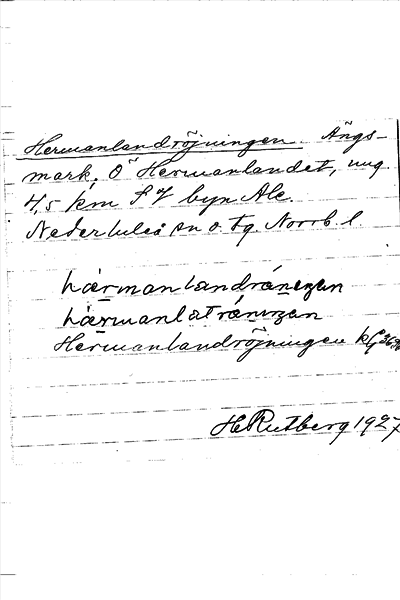 Hermanlandröjningen. Ängs-
mark. Ö Hermanlandet, ung.
4,5 km S V byn Ale.
Nederluleå sn o. tg Norrb. l.
hærmanlandrǻnizan
hærmanlatrǻnizan
Hermanlandröjningen
HRutberg 1927